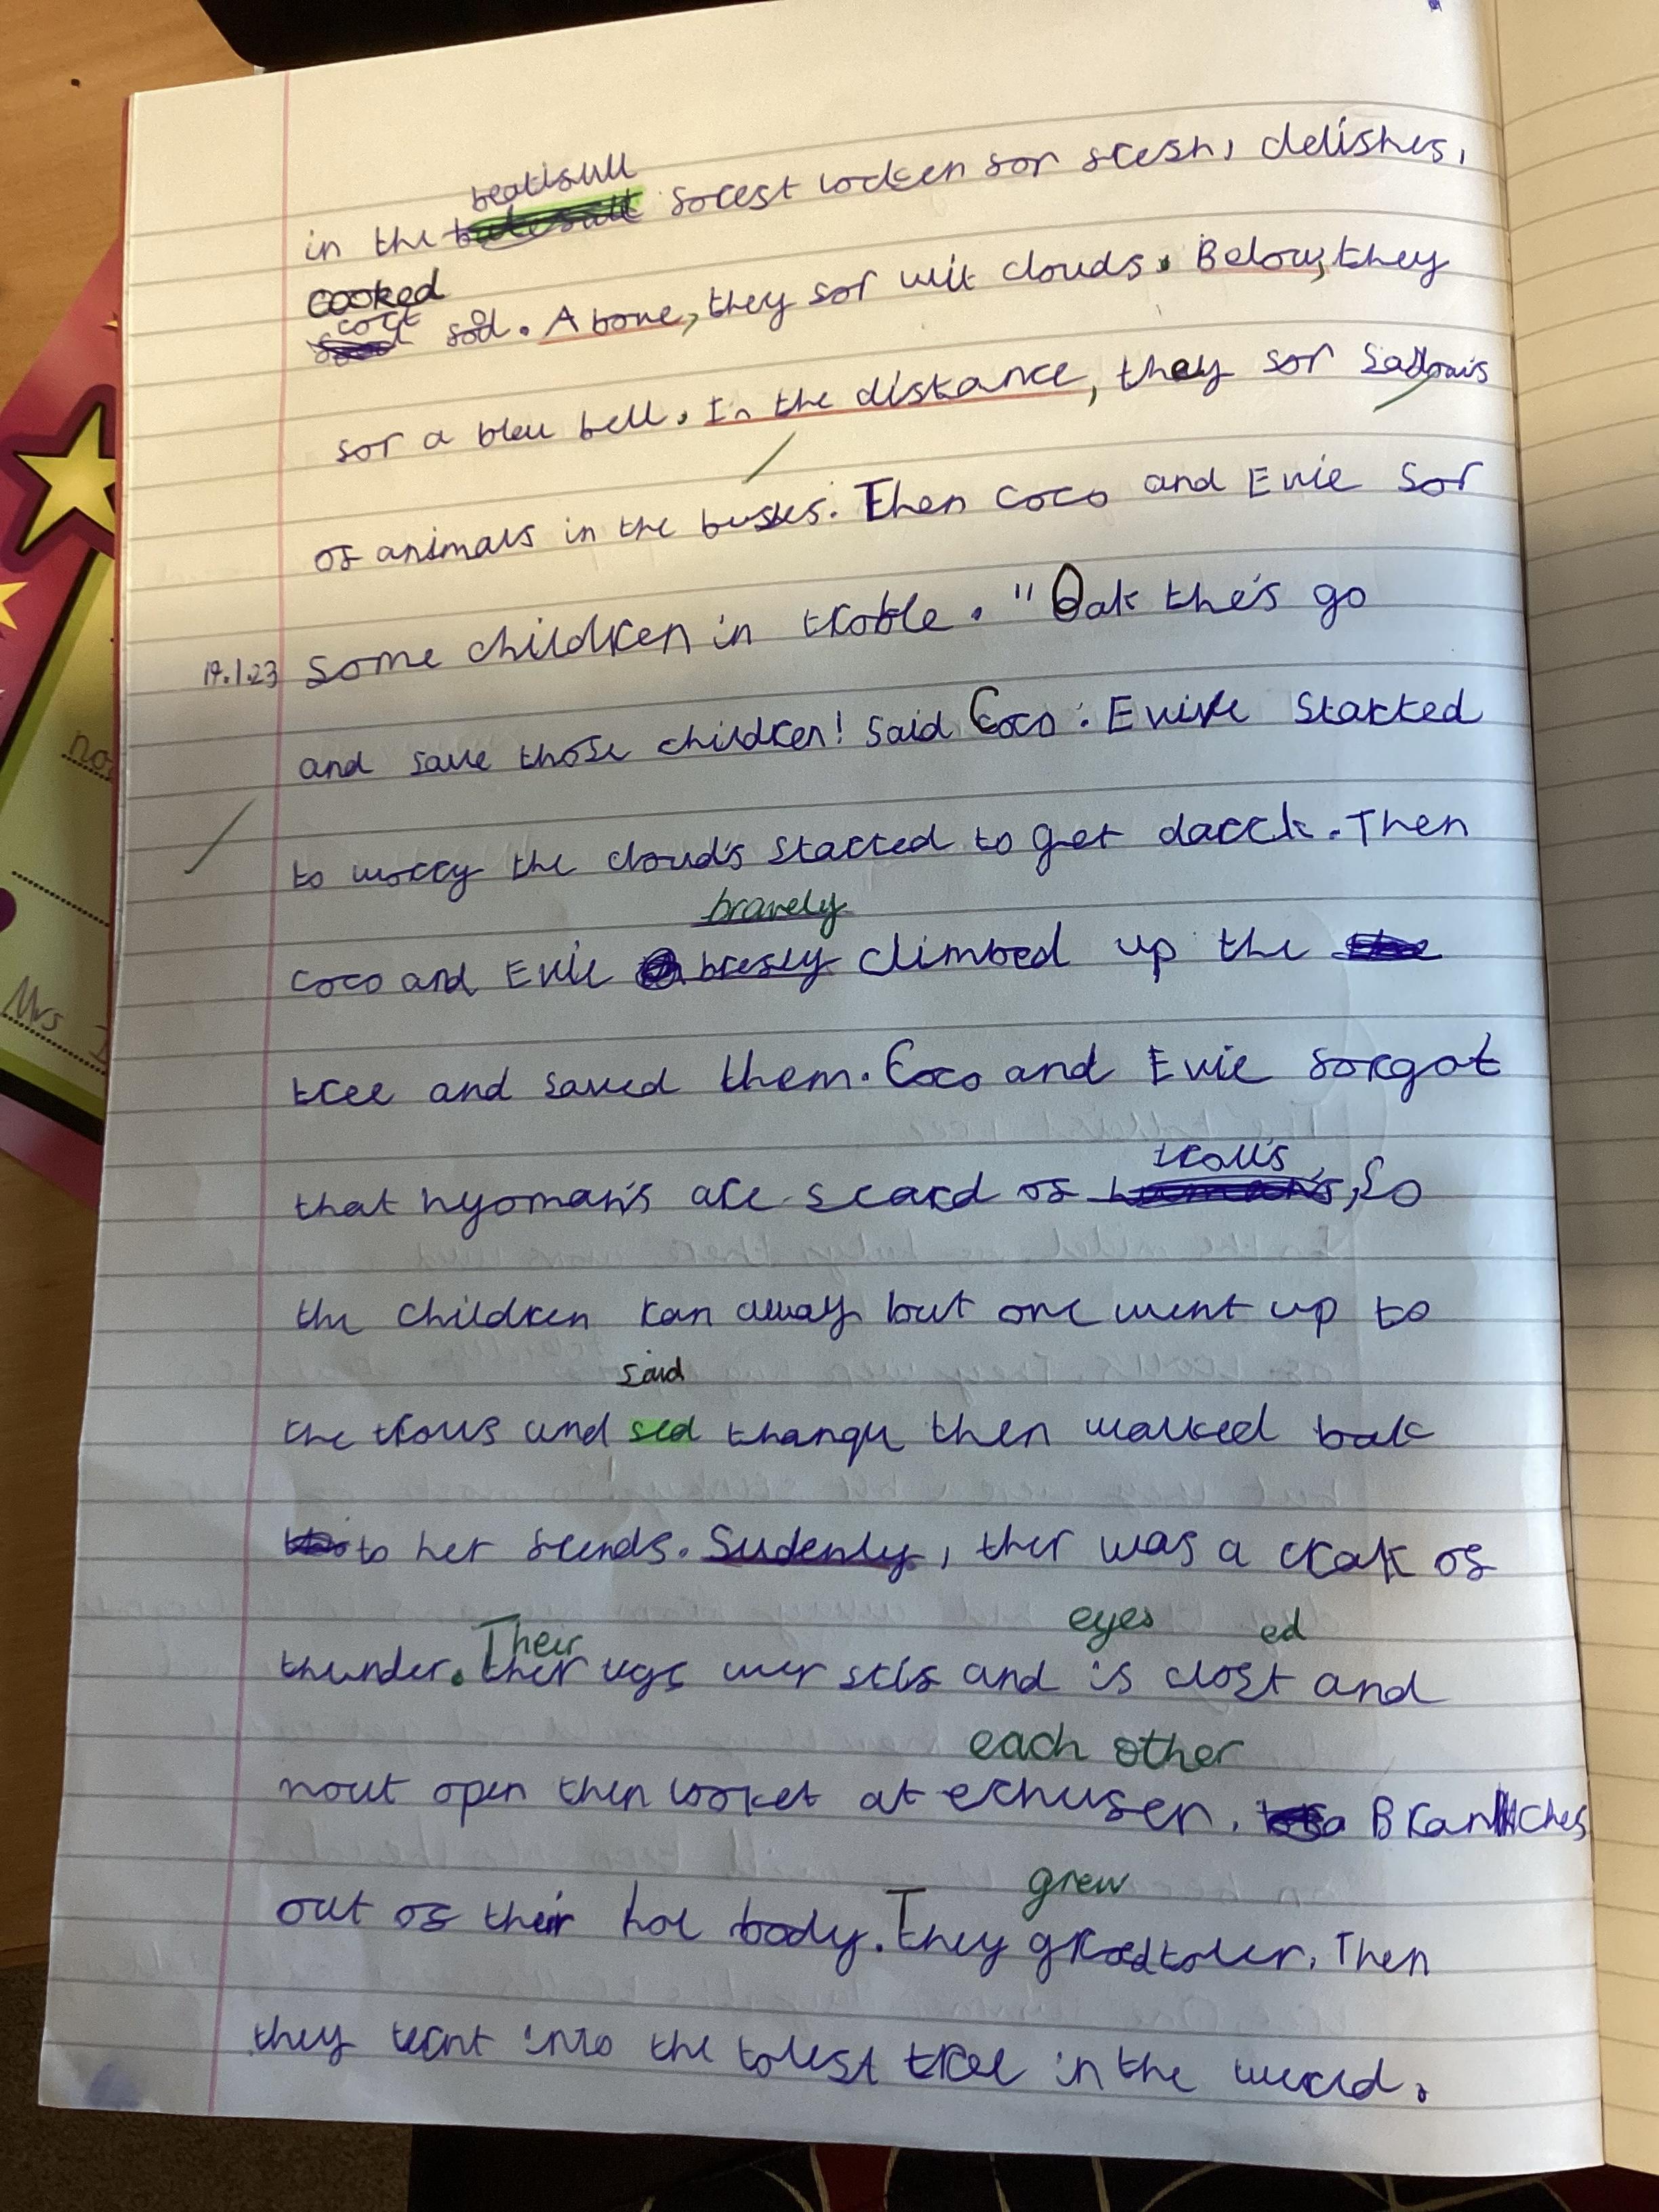 beatifull
in the forest locken for fresh, delishes,
cooked
cort food. Above, they sor wit clouds. Below, they
sor a bleu bell. In the distance, they sor
of animals in the bushes. Then Coco and Evie sor
19.1.23 some children in troble. "Oak the's go
and save those children! Said Coco. Evie started
to worry the cloud's started to get darck. Then
bravely
Coco and Evie bresly climbed up the
tree and saved them. Coco and Evie forgot
troll's
that hyoman's are scard of, So
the children ran away but one went up to
said
the trolls and sed thanqu then walked bak
to her frends. Sudenly, ther was a crak of
Their eyes ed
thunder. ther legs wer stif and is clost and
each other
mout open then looket at echuser. Branches
out of their hol body. They groed toler. Then
grew
they ternt into the tolest tree in the werld.
no
Mrs